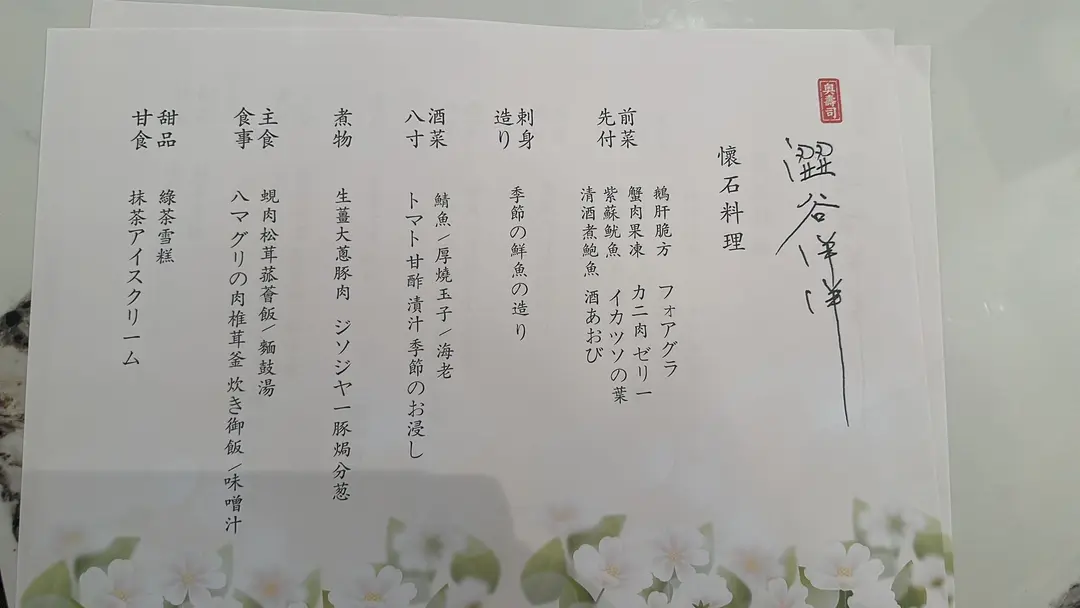 奥壽司
澀谷洋洋
懷石料理
前菜
先付
鵝肝脆方 フォアグラ
蟹肉果凍 カニ肉ゼリー
紫蘇魷魚 イカツソの葉
清酒煮鮑魚 酒あおび
刺身
造り
季節の鮮魚の造り
酒菜
八寸
鯖魚/厚燒玉子/海老
トマト甘酢漬汁 季節のお浸し
煮物
生薑大蔥豚肉 ジソジヤー豚焗分葱
主食
食事
蜆肉松茸菰薈飯/麵鼓湯
ハマグリの肉椎茸釜炊き御飯/味噌汁
甜品
甘食
綠茶雪糕
抹茶アイスクリーム